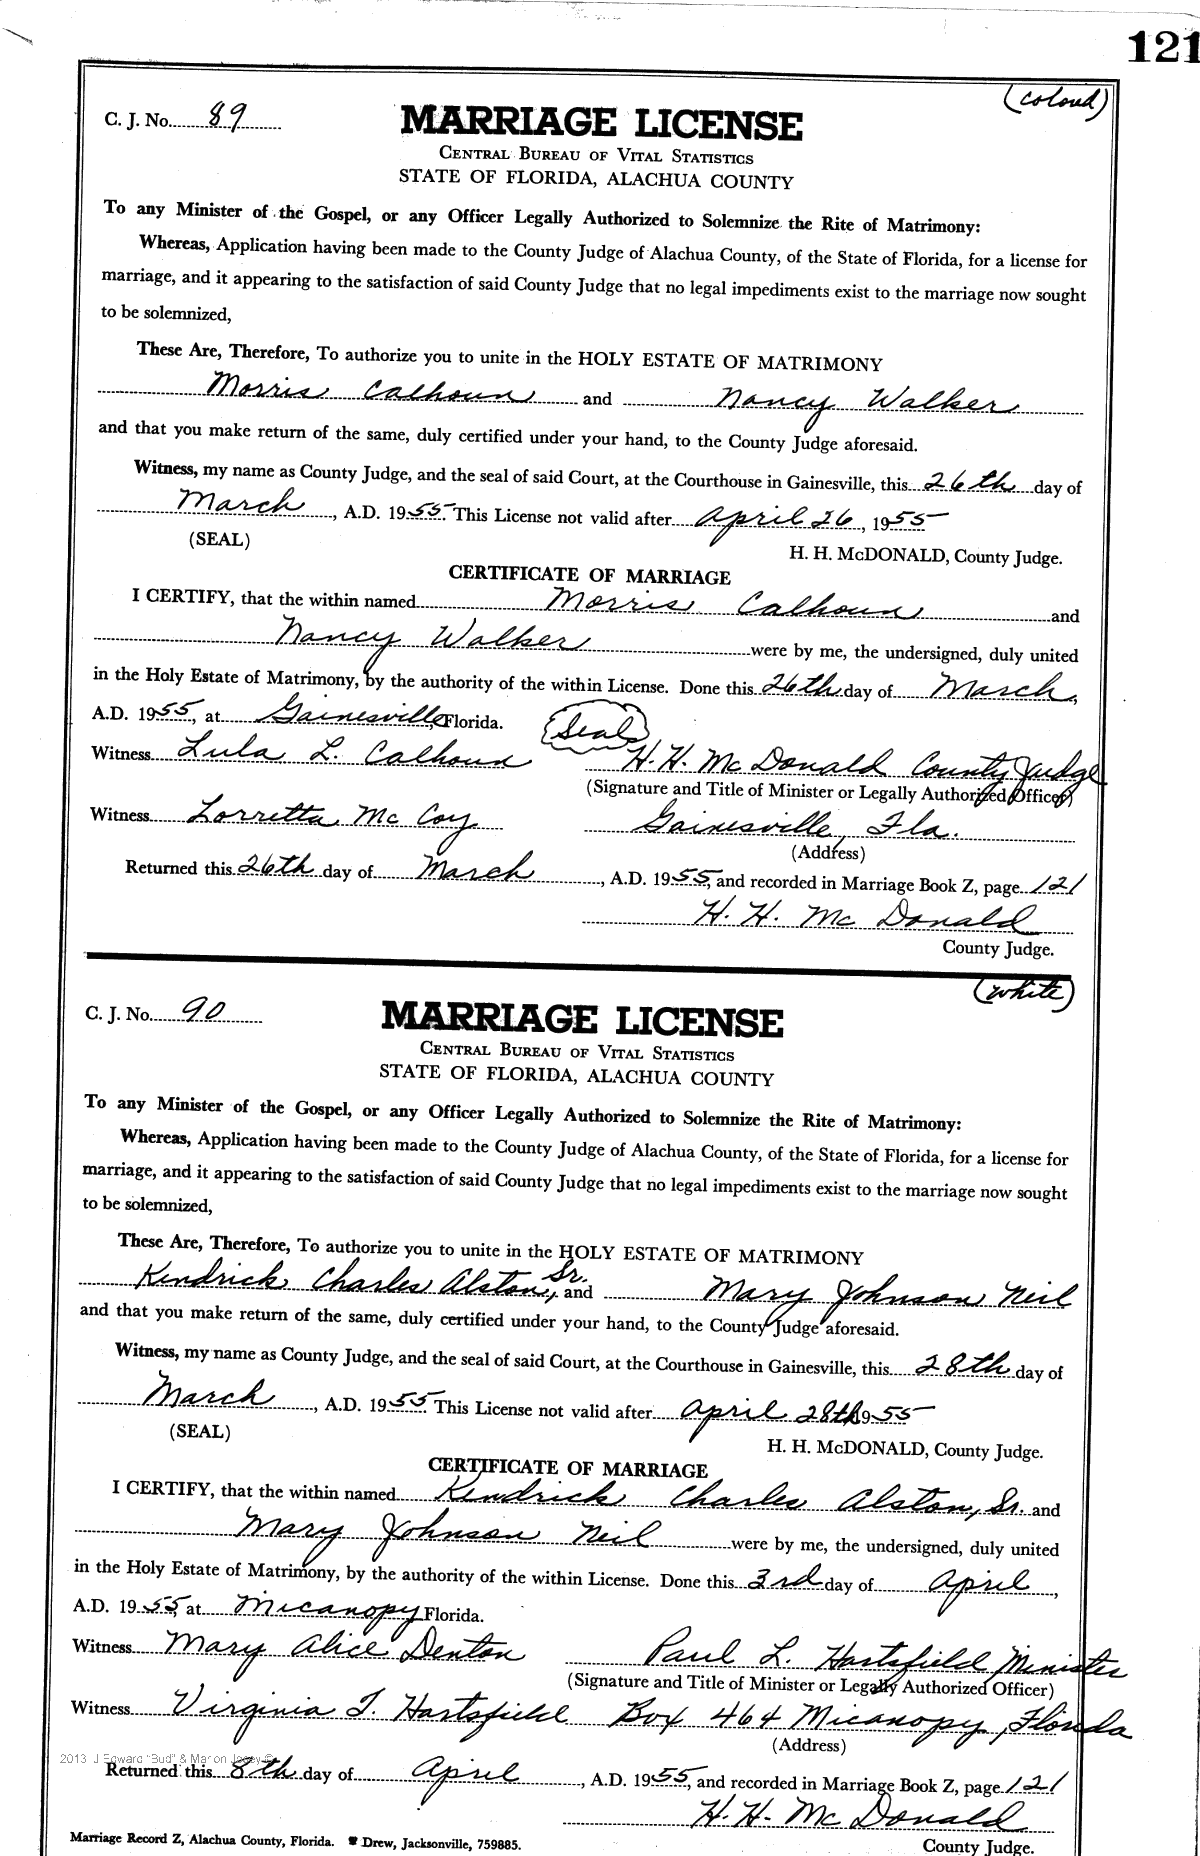 121
(colored)
C. J. No. 89
MARRIAGE LICENSE
CENTRAL BUREAU OF VITAL STATISTICS
STATE OF FLORIDA, ALACHUA COUNTY
To any Minister of the Gospel, or any Officer Legally Authorized to Solemnize the Rite of Matrimony:
Whereas, Application having been made to the County Judge of Alachua County, of the State of Florida, for a license for
marriage, and it appearing to the satisfaction of said County Judge that no legal impediments exist to the marriage now sought
to be solemnized,
These Are, Therefore, To authorize you to unite in the HOLY ESTATE OF MATRIMONY
Morris Calhoun and Nancy Walker
and that you make return of the same, duly certified under your hand, to the County Judge aforesaid.
Witness, my name as County Judge, and the seal of said Court, at the Courthouse in Gainesville, this 26th day of
March, A.D. 1955. This License not valid after April 26, 1955
(SEAL)
H. H. McDONALD, County Judge.
CERTIFICATE OF MARRIAGE
I CERTIFY, that the within named Morris Calhoun and
Nancy Walker were by me, the undersigned, duly united
in the Holy Estate of Matrimony, by the authority of the within License. Done this 26th day of March,
A.D. 1955, at Gainesville, Florida. (Seal)
Witness Lula L. Calhoun H. H. McDonald County Judge
(Signature and Title of Minister or Legally Authorized Officer)
Witness Lorretta McCoy Gainesville, Fla.
(Address)
Returned this 26th day of March, A.D. 1955, and recorded in Marriage Book Z, page 121
H. H. McDonald
County Judge.
(white)
C. J. No. 90
MARRIAGE LICENSE
CENTRAL BUREAU OF VITAL STATISTICS
STATE OF FLORIDA, ALACHUA COUNTY
To any Minister of the Gospel, or any Officer Legally Authorized to Solemnize the Rite of Matrimony:
Whereas, Application having been made to the County Judge of Alachua County, of the State of Florida, for a license for
marriage, and it appearing to the satisfaction of said County Judge that no legal impediments exist to the marriage now sought
to be solemnized,
These Are, Therefore, To authorize you to unite in the HOLY ESTATE OF MATRIMONY
Kendrick Charles Alston, Sr. and Mary Johnson Neil
and that you make return of the same, duly certified under your hand, to the County Judge aforesaid.
Witness, my name as County Judge, and the seal of said Court, at the Courthouse in Gainesville, this 28th day of
March, A.D. 1955. This License not valid after April 28th 1955
(SEAL)
H. H. McDONALD, County Judge.
CERTIFICATE OF MARRIAGE
I CERTIFY, that the within named Kendrick Charles Alston, Sr. and
Mary Johnson Neil were by me, the undersigned, duly united
in the Holy Estate of Matrimony, by the authority of the within License. Done this 3rd day of April,
A.D. 1955, at Micanopy Florida.
Witness Mary Alice Denton Paul L. Hartsfield Minister
(Signature and Title of Minister or Legally Authorized Officer)
Witness Virginia T. Hartsfield Box 464 Micanopy, Florida
(Address)
2013 J Edward "Bud" & Marion
Returned this 8th day of April, A.D. 1955, and recorded in Marriage Book Z, page 121
H. H. McDonald
Marriage Record Z, Alachua County, Florida. Drew, Jacksonville, 759885.
County Judge.